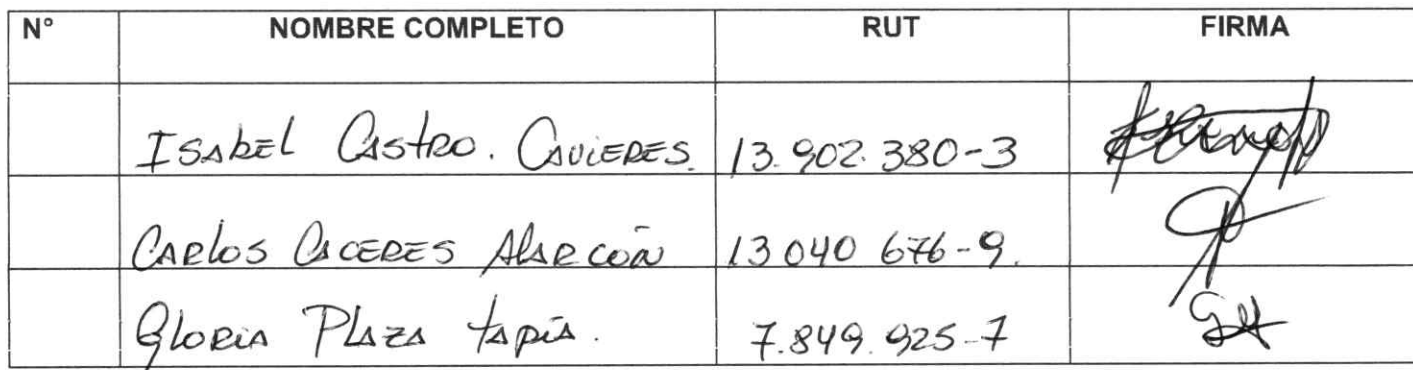 N° NOMBRE COMPLETO RUT FIRMA
Isabel Castro. Cavieres. 13.902.380-3
Carlos Caceres Alarcón 13 040 676-9.
Gloria Plaza tapia. 7.849.925-7